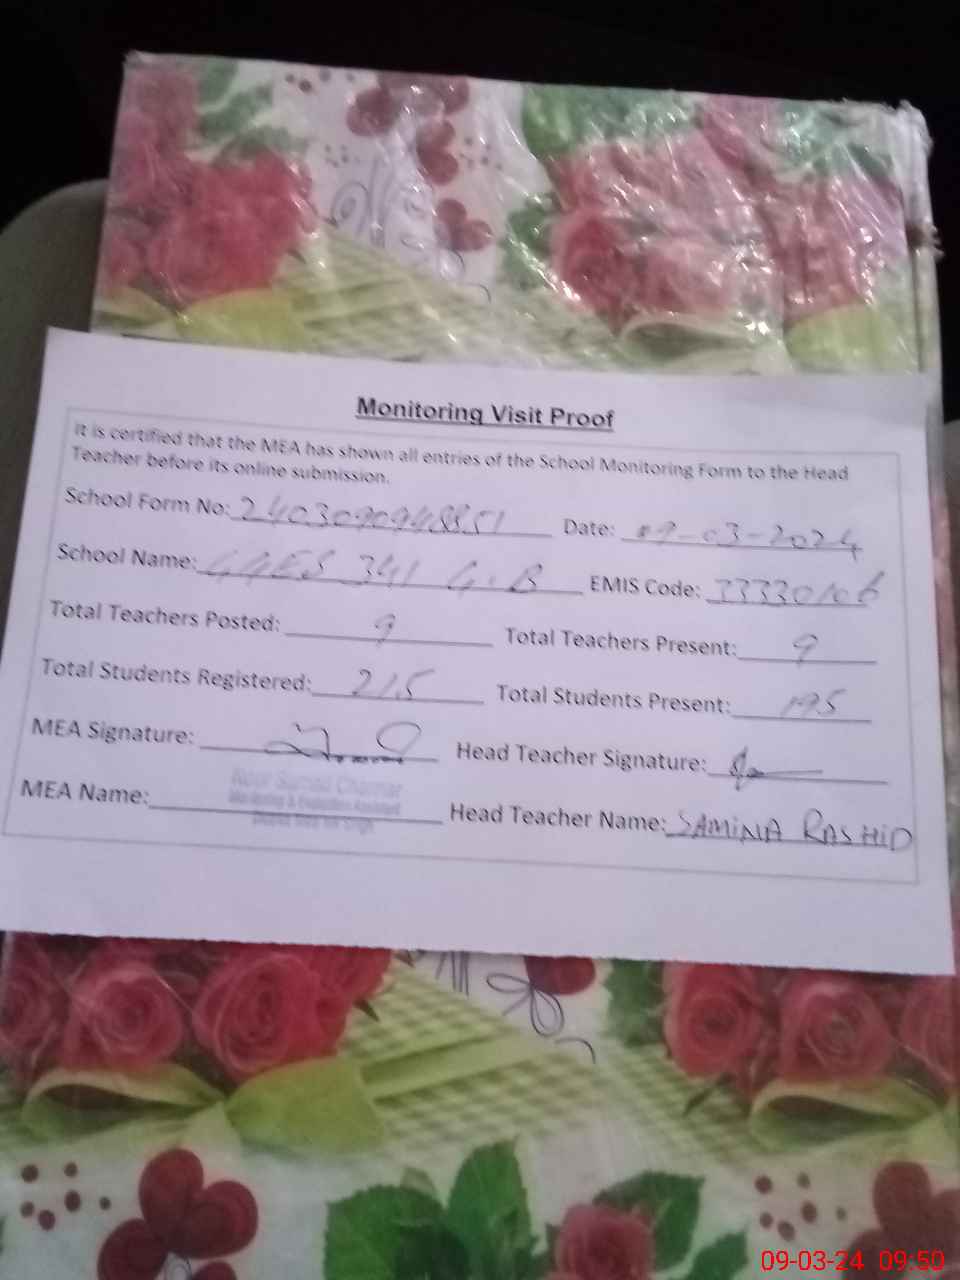 Monitoring Visit Proof
It is certified that the MEA has shown all entries of the School Monitoring Form to the Head
Teacher before its online submission.
School Form No: 2403090948851 Date: 09-03-2024
School Name: GGES 341 G.B EMIS Code: 33330106
Total Teachers Posted: 9 Total Teachers Present: 9
Total Students Registered: 215 Total Students Present: 195
MEA Signature: Head Teacher Signature:
MEA Name: Head Teacher Name: SAMINA RASHID
Monitoring & Evaluation Assistant
09-03-24 09:50